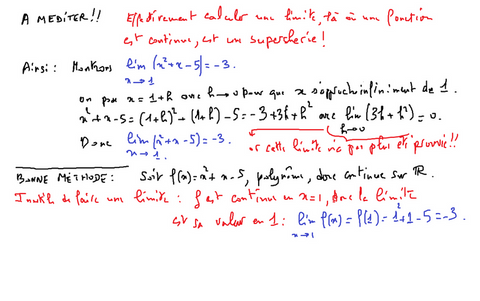 A MEDITER!! Effectivement calculer une limite, là où une fonction
est continue, est une supercherie!
Ainsi: Montrons lim (x²+x-5)=-3.
x→1
on pose x=1+h avec h→0 pour que x s'approche infiniment de 1.
x²+x-5=(1+h)²+(1+h)-5=-3+3h+h² avec lim (3h+h²)=0.
h→0
Donc lim (x²+x-5)=-3.
x→1
or cette limite n'a pas plus été prouvée!!
BONNE METHODE: Soit f(x)=x²+x-5, polynôme, donc continue sur ℝ.
Inutile de faire une limite: f est continue en x=1, donc la limite
est sa valeur en 1: lim f(x)=f(1)=1²+1-5=-3.
x→1